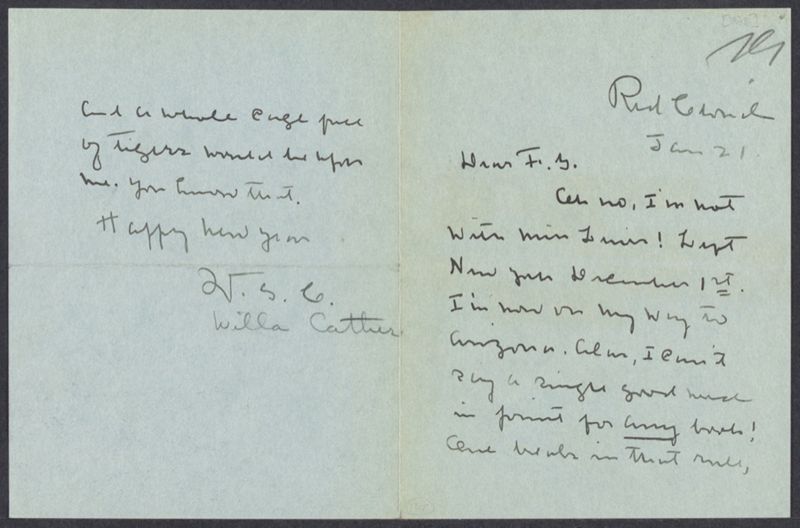 Red Cloud
Jan 21.
Dear F. G.
Oh no, I'm not
with Miss Lewis! Left
New York December 1st.
I'm now on my way to
Arizona. Alas, I can't
say a single good word
in print for any book!
One break in that rule,
and a whole cage full
of tigers would be upon
me. You know that.
Happy New Year
W. S. C.
Willa Cather